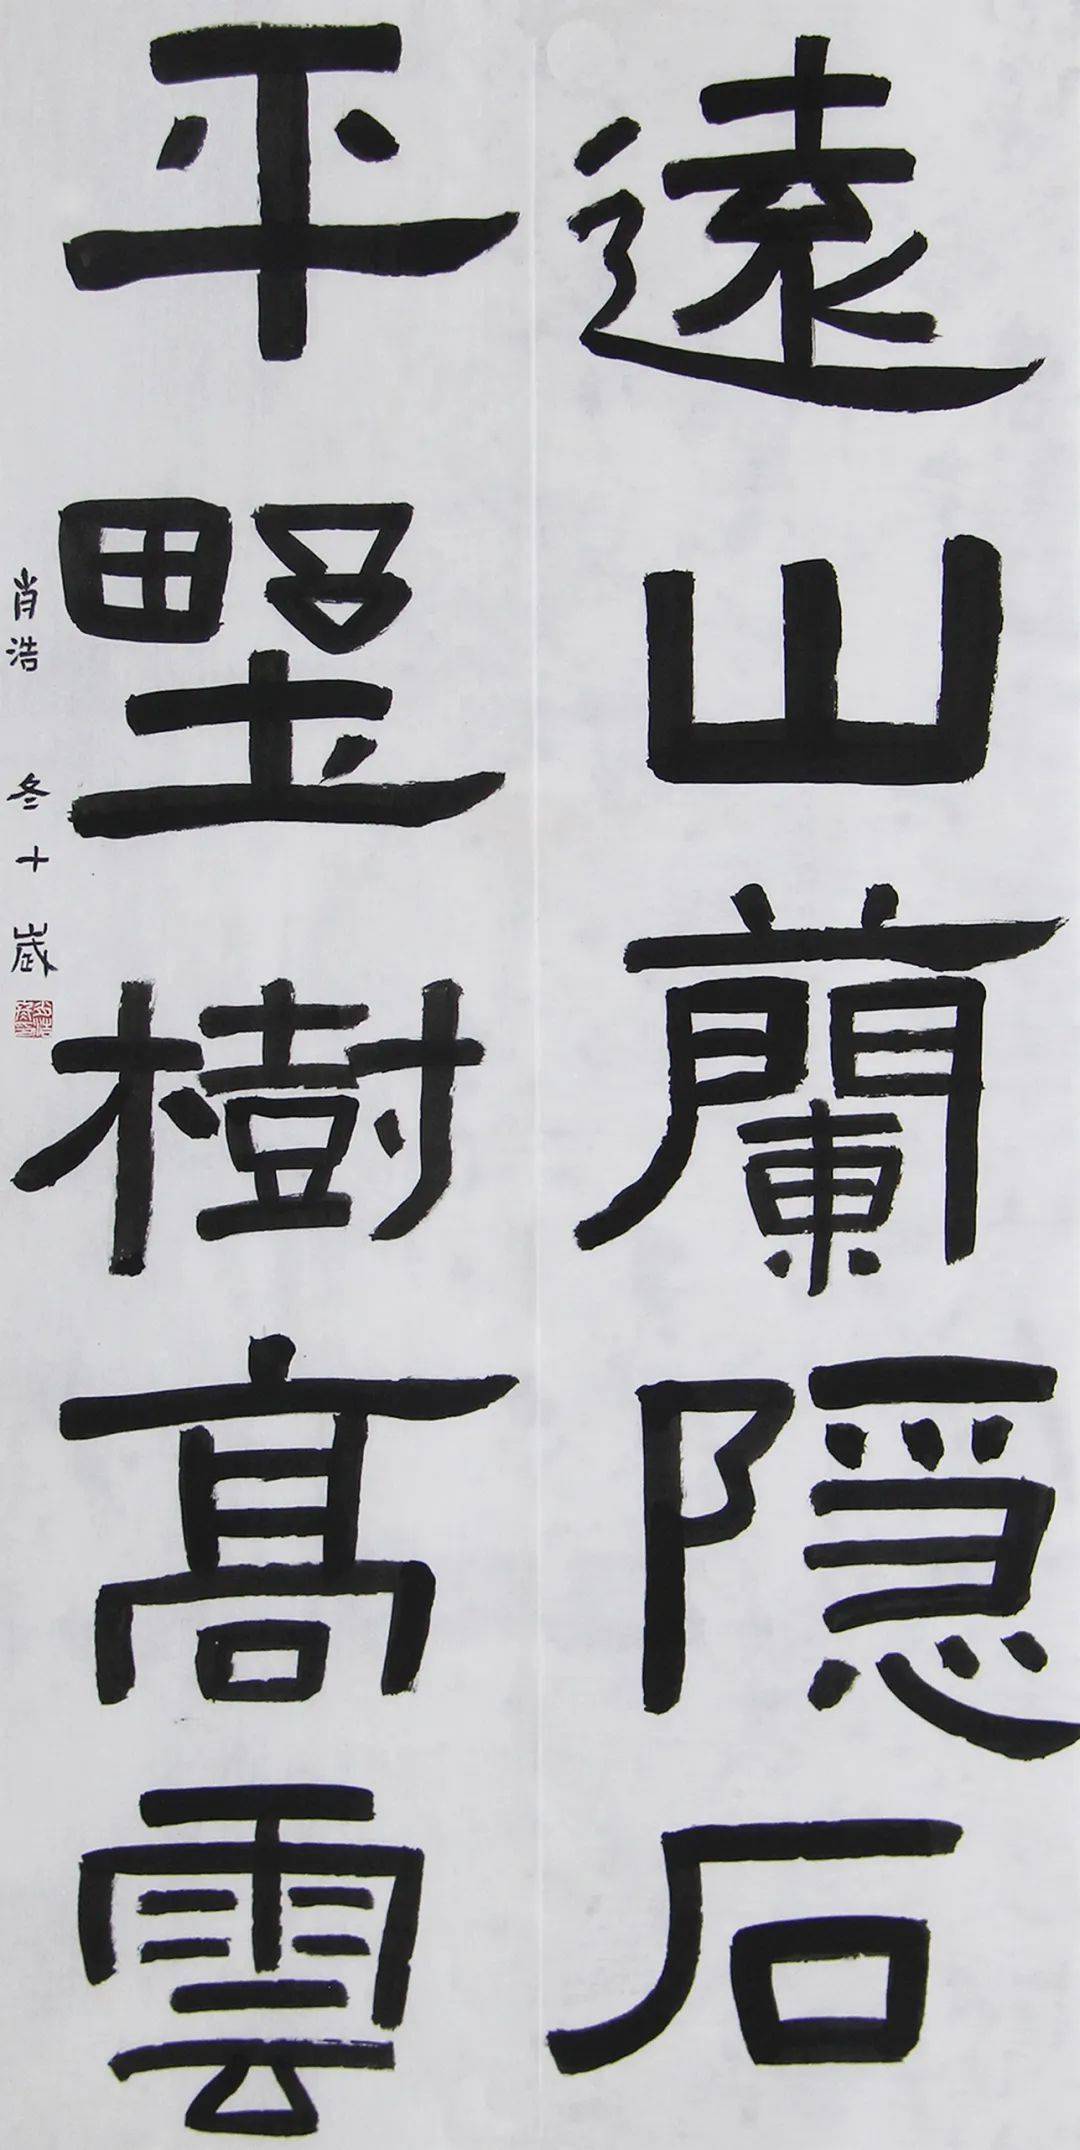 遠山蘭隱石
平野樹高雲
肖浩 冬 十 歲